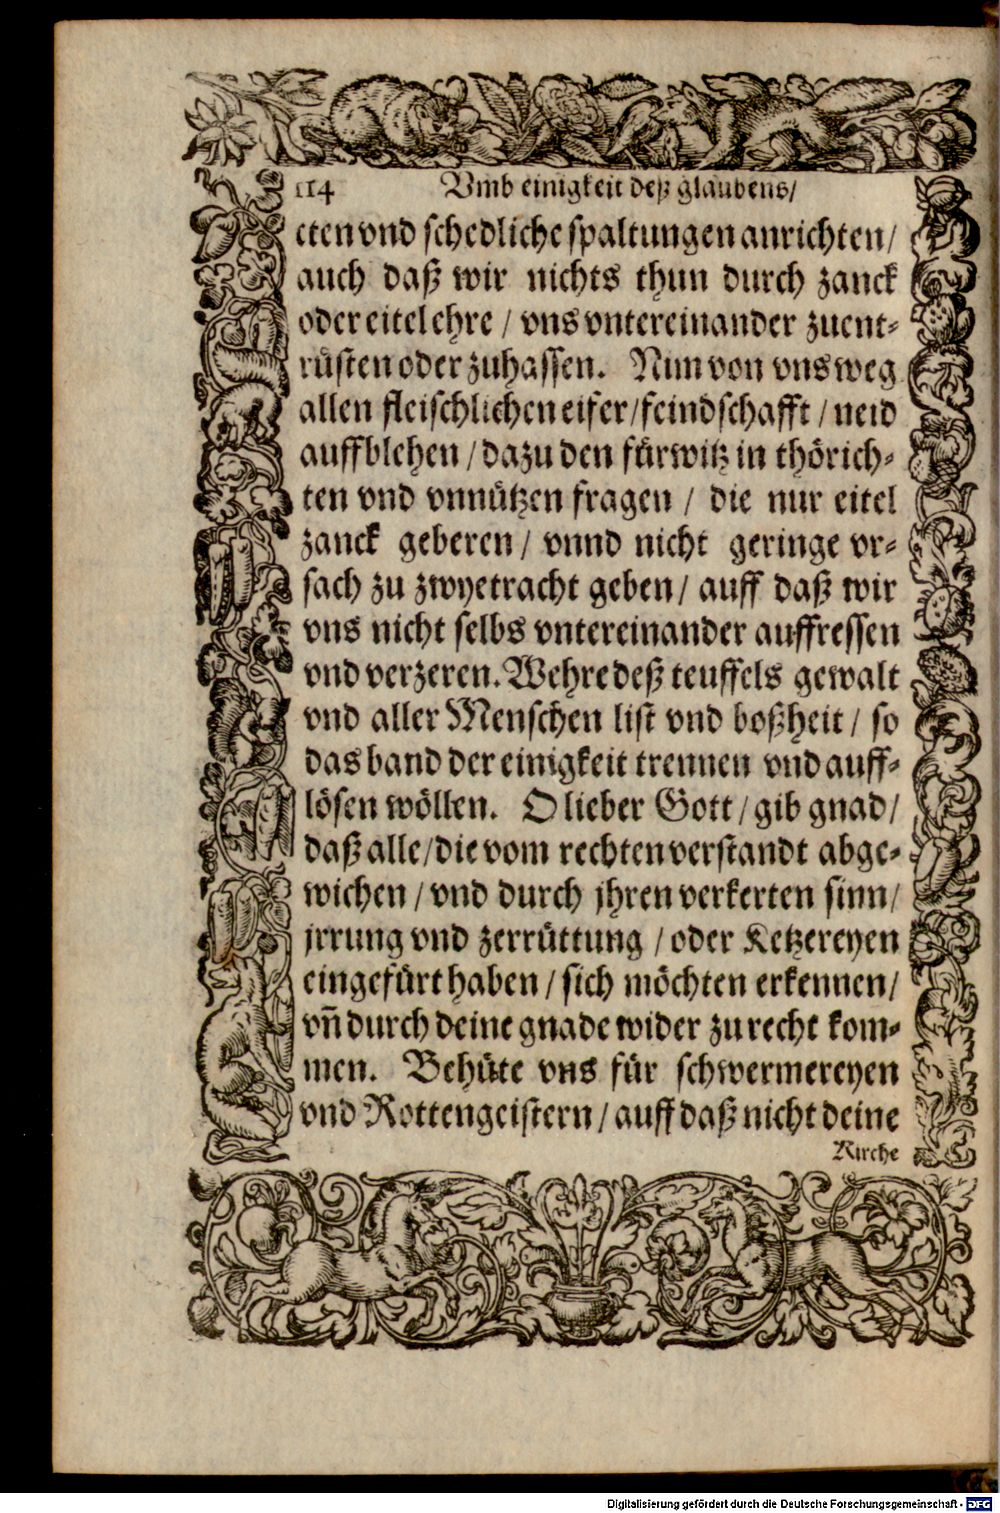 114 Vmb einigkeit deß glaubens/
cten vnd schedliche spaltungen anrichten/
auch daß wir nichts thun durch zanck
oder eitel ehre / vns vntereinander zuent⸗
rüsten oder zuhassen. Nim von vns weg
allen fleischlichen eifer/feindschafft / neid
auffblehen / dazu den fürwitz in thörich⸗
ten vnd vnnützen fragen / die nur eitel
zanck geberen / vnnd nicht geringe vr⸗
sach zu zwyetracht geben / auff daß wir
vns nicht selbs vntereinander auffressen
vnd verzeren. Wehre deß teuffels gewalt
vnd aller Menschen list vnd boßheit / so
das band der einigkeit trennen vnd auff⸗
lösen wöllen. O lieber Gott / gib gnad /
daß alle/die vom rechten verstandt abge⸗
wichen / vnd durch jhren verkerten sinn/
jrrung vnd zerrüttung / oder Ketzereyen
eingefürt haben / sich möchten erkennen/
vñ durch deine gnade wider zu recht kom⸗
men. Behüte vns für schwermereyen
vnd Rottengeistern / auff daß nicht deine
Kirche
Digitalisierung gefördert durch die Deutsche Forschungsgemeinschaft - DFG